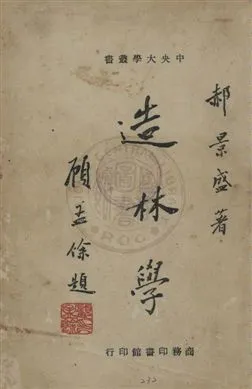 中央大學叢書
郝景盛著
造林學
顧孟餘題
商務印書館印行
232